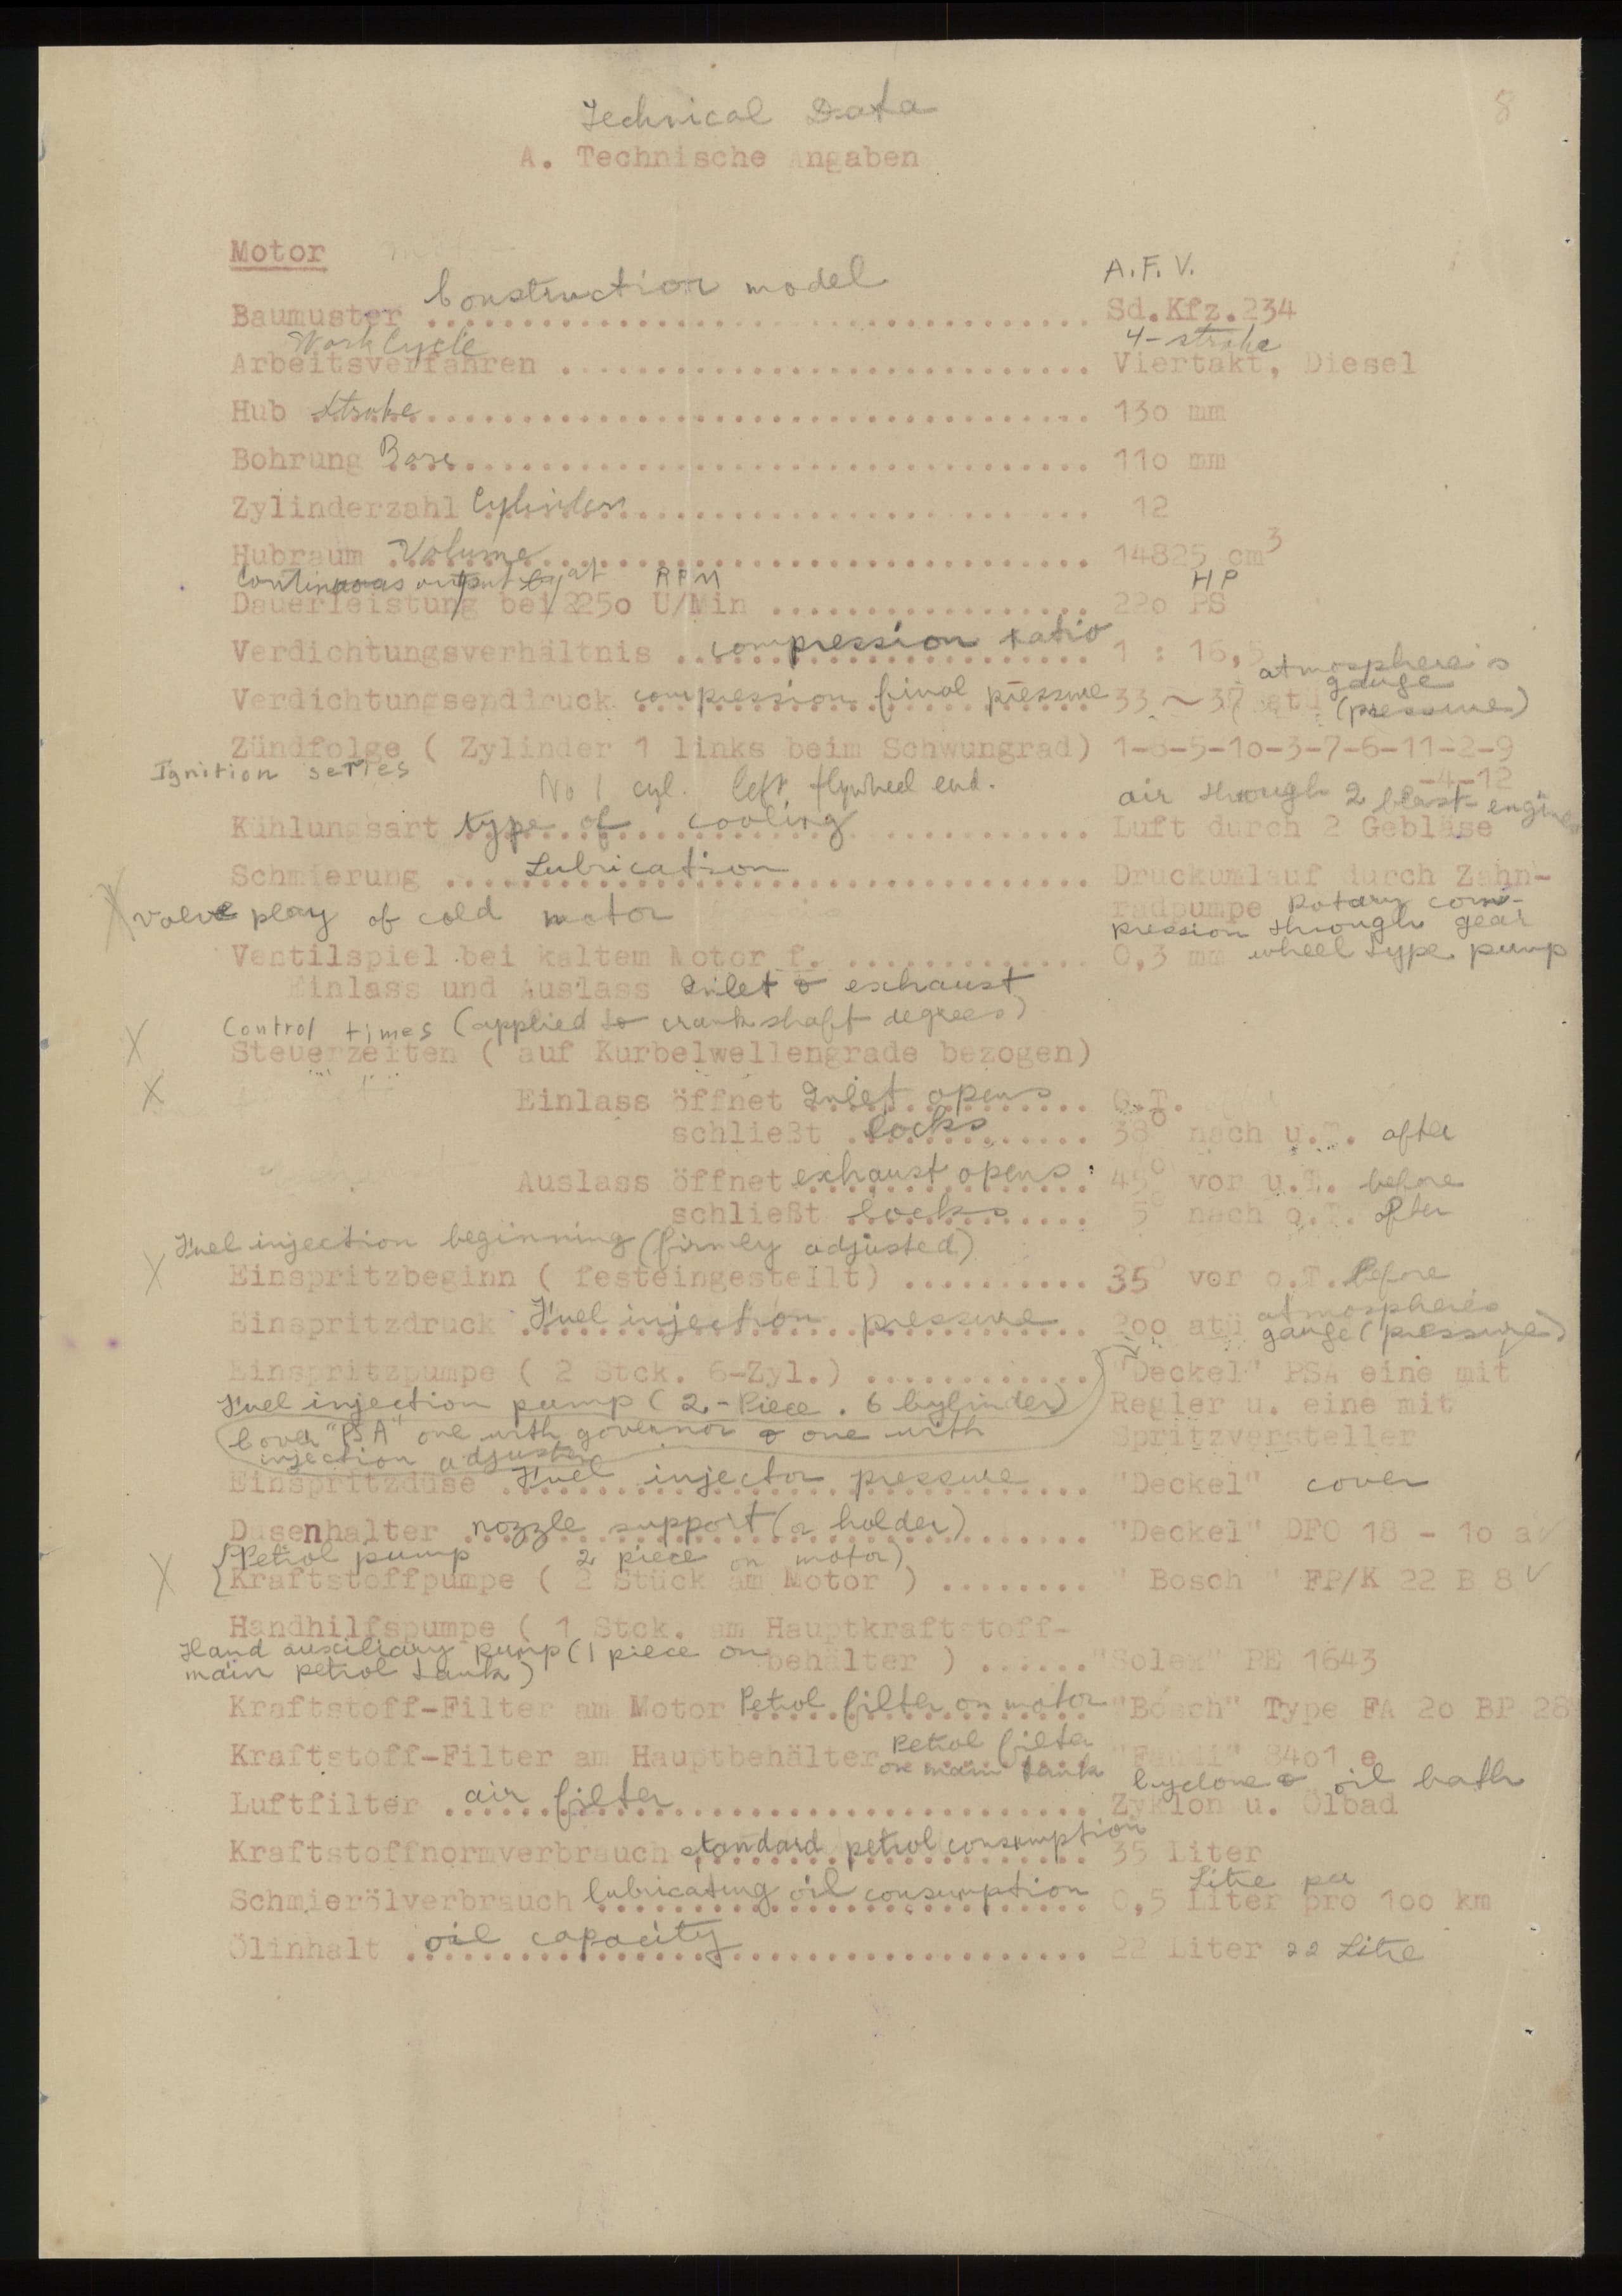 Technical Data
8
A. Technische Angaben
Motor
A.F.V.
Construction model
Baumuster .................................. Sd.Kfz.234
Work Cycle 4-stroke
Arbeitsverfahren ........................... Viertakt, Diesel
Hub Stroke ................................. 130 mm
Bohrung Bore ............................... 110 mm
Zylinderzahl Cylinders ..................... 12
Hubraum Volume ............................. 14825 cm³
Continuous output at RPM HP
Dauerleistung bei 2250 U/Min ............... 220 PS
Verdichtungsverhältnis compression ratio ... 1 : 16,5
atmosphere's
gauge
Verdichtungsenddruck compression final pressure 33 ~ 37 atü (pressure)
Zündfolge ( Zylinder 1 links beim Schwungrad) 1-8-5-10-3-7-6-11-2-9
-4-12
Ignition series
No 1 cyl. left flywheel end.
air through 2 blast engines
Kühlungsart type of cooling ................ Luft durch 2 Gebläse
Schmierung Lubrication ..................... Druckumlauf durch Zahn-
radpumpe Rotary com-
Valve play of cold motor
pression through gear
Ventilspiel bei kaltem Motor f. ............ 0,3 mm wheel type pump
Einlass und Auslass Inlet & exhaust
Control times (applied to crankshaft degrees)
Steuerzeiten ( auf Kurbelwellengrade bezogen)
Einlass öffnet Inlet opens ...
schließt locks ... 38° nach u.T. after
Auslass öffnet exhaust opens ... 45° vor u.T. before
schließt locks ... 5° nach o.T. after
Fuel injection beginning (firmly adjusted)
Einspritzbeginn ( festeingestellt) .......... 35° vor o.T. before
atmospheres
Einspritzdruck Fuel injection pressure ..... 200 atü gauge (pressure)
Einspritzpumpe ( 2 Stck. 6-Zyl.) ............ "Deckel" PSA eine mit
Fuel injection pump (2 - Piece . 6 Cylinder) Regler u. eine mit
Cover "PSA" one with governor & one with Spritzversteller
injection adjuster
Einspritzdüse Fuel injector pressure ....... "Deckel" cover
Düsenhalter nozzle support (or holder) ..... "Deckel" DFO 18 - 10 a
Petrol pump 2 piece on motor)
Kraftstoffpumpe ( 2 Stück am Motor ) ........ " Bosch " FP/K 22 B 8
Handhilfspumpe ( 1 Stck. am Hauptkraftstoff-
Hand auxiliary pump (1 piece on
behälter ) ...... "Solex" PE 1643
main petrol tank)
Kraftstoff-Filter am Motor Petrol filter on motor "Bosch" Type FA 20 BP 28
Petrol filter
Kraftstoff-Filter am Hauptbehälter on main tank "Faudi" 8401 e
Cyclone & oil bath
Luftfilter air filter ...................... Zyklon u. Ölbad
Kraftstoffnormverbrauch standard petrol consumption 35 Liter
Litre per
Schmierölverbrauch lubricating oil consumption 0,5 Liter pro 100 km
Ölinhalt oil capacity ...................... 22 Liter 22 Litre